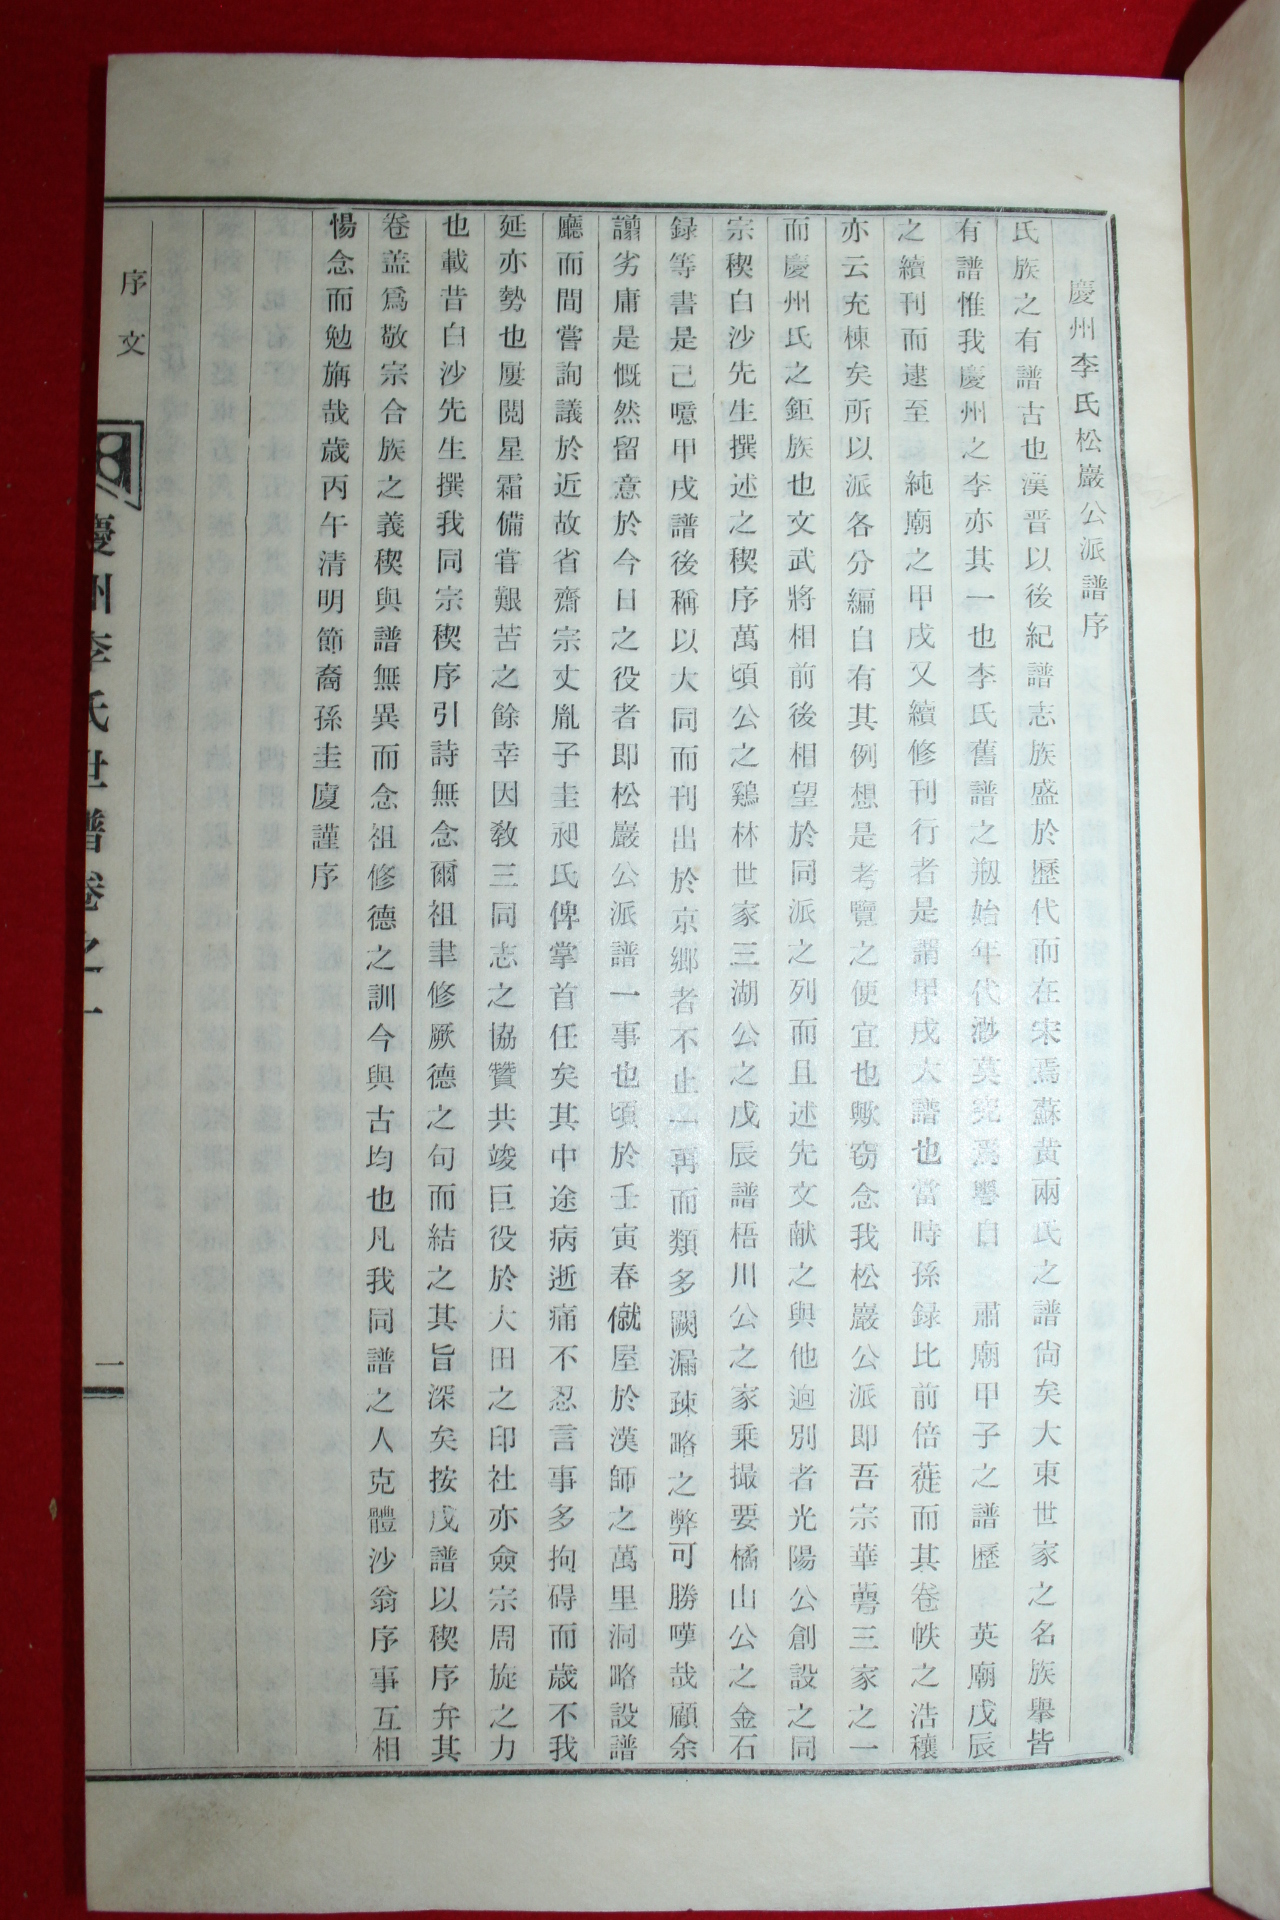 慶州李氏松巖公派譜序
氏族之有譜古也漢晋以後紀譜志族盛於歷代而在宋焉蘇黃兩氏之譜尙矣大東世家之名族擧皆
有譜惟我慶州之李亦其一也李氏舊譜之刱始年代渺莫究焉粤自 肅廟甲子之譜歷 英廟戊辰
之續刊而逮至 純廟之甲戌又續修刊行者是謂甲戌大譜也當時孫録比前倍蓰而其卷帙之浩穰
亦云充棟矣所以派各分編自有其例想是考覽之便宜也歟窃念我松巖公派即吾宗華萼三家之一
而慶州氏之鉅族也文武將相前後相望於同派之列而且述先文献之與他逈別者光陽公創設之同
宗稧白沙先生撰述之稧序萬頃公之鷄林世家三湖公之戊辰譜梧川公之家乘撮要橘山公之金石
録等書是己噫甲戌譜後稱以大同而刊出於京鄉者不止一再而類多闕漏疎略之弊可勝嘆哉顧余
譾劣庸是慨然留意於今日之役者即松巖公派譜一事也頃於壬寅春僦屋於漢師之萬里洞略設譜
廳而間嘗詢議於近故省齋宗丈胤子圭昶氏俾掌首任矣其中途病逝痛不忍言事多拘碍而歲不我
延亦勢也屢閱星霜備甞艱苦之餘幸因敎三同志之協贊共竣巨役於大田之印社亦僉宗周旋之力
也載昔白沙先生撰我同宗稧序引詩無念爾祖聿修厥德之句而結之其旨深矣按戊譜以稧序弁其
卷盖爲敬宗合族之義稧與譜無異而念祖修德之訓今與古均也凡我同譜之人克體沙翁序事互相
惕念而勉旃哉歲丙午清明節裔孫圭廈謹序
序文
慶州李氏世譜卷之一
一